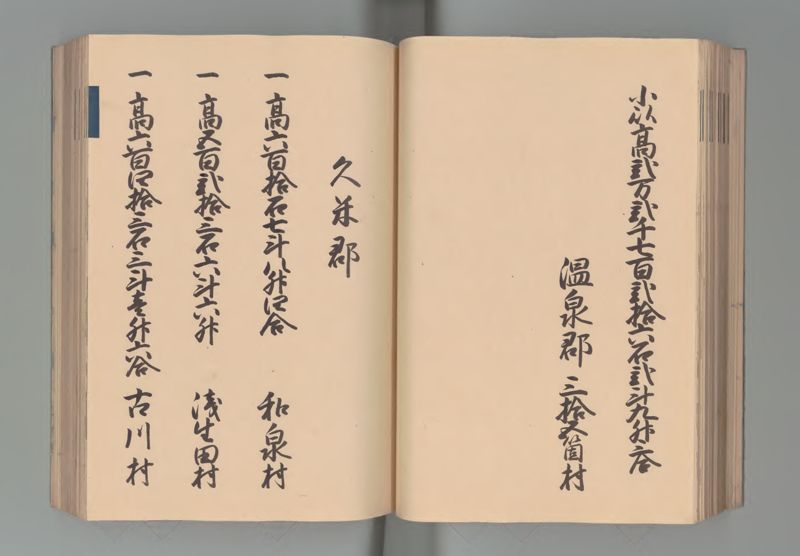 小以高弐万弐千七百弐拾六石弐斗九升六合
温泉郡 三拾五箇村
久米郡
一 高六百拾石七斗八升四合 和泉村
一 高五百弐拾三石六斗六升 浅生田村
一 高六百四拾三石三斗壱升六合 古川村